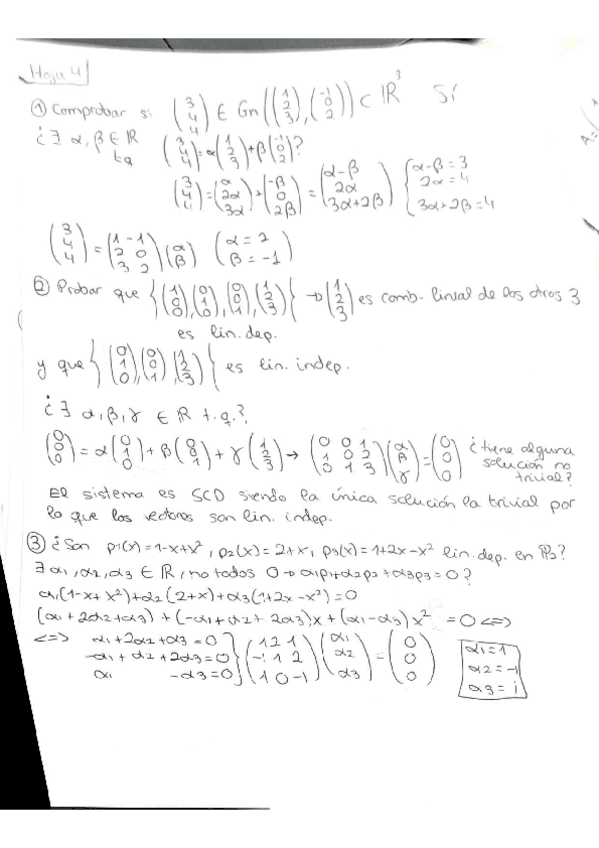 Hoja 4
① Comprobar si (3 4 4) ∈ Gn((1 2 3), (-1 0 2)) ⊂ ℝ³ SÍ
¿∃ α, β ∈ ℝ
tq (3 4 4) = α(1 2 3) + β(-1 0 2)?
(3 4 4) = (α 2α 3α) + (-β 0 2β) = (α-β 2α 3α+2β) { α-β=3 2α=4 3α+2β=4
(3 4 4) = (1 -1 2 0 3 2)(α β) (α=2 β=-1)
② Probar que {(1 0 0), (0 1 0), (0 0 1), (1 2 3)} → (1 2 3) es comb. linial de los otros 3
es lin. dep.
y que {(0 1 0), (0 0 1), (1 2 3)} es lin. indep.
¿∃ α, β, γ ∈ ℝ t.q.?
(0 0 0) = α(0 1 0) + β(0 0 1) + γ(1 2 3) → (0 0 1 1 0 2 0 1 3)(α β γ) = (0 0 0) ¿tiene alguna solución no trivial?
El sistema es SCD siendo la única solución la trivial por
lo que los vectores son lin. indep.
③ ¿Son p1(x)=1-x+x², p2(x)=2+x, p3(x)=1+2x-x² lin. dep. en ℙ3?
∃ α1, α2, α3 ∈ ℝ, no todos 0 → α1p1+α2p2+α3p3=0?
α1(1-x+x²)+α2(2+x)+α3(1+2x-x²)=0
(α1+2α2+α3)+(-α1+α2+2α3)x+(α1-α3)x² =0 <=>
<=> α1+2α2+α3=0 -α1+α2+2α3=0 α1 -α3=0 } (1 2 1 -1 1 2 1 0 -1)(α1 α2 α3) = (0 0 0) α1=1 α2=-1 α3=1